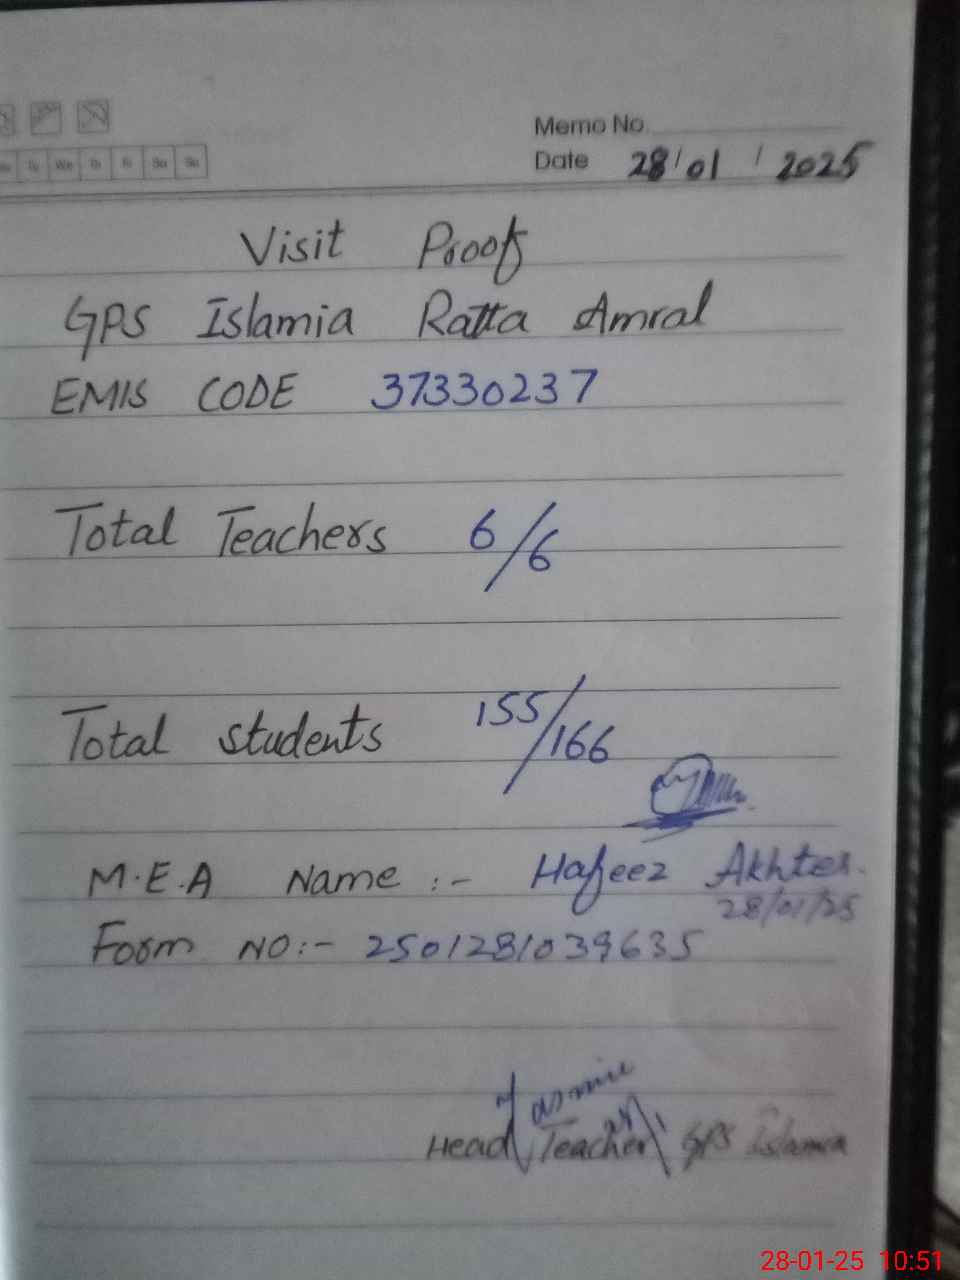 Memo No.
Date 28/01/2025
Visit Proof
GPS Islamia Ratta Amral
EMIS CODE 37330237
Total Teachers 6/6
Total students 155/166
M.E.A Name :- Hafeez Akhter.
28/01/25
Form NO:- 2501281039635
Head Teacher GPS Islamia
28-01-25 10:51